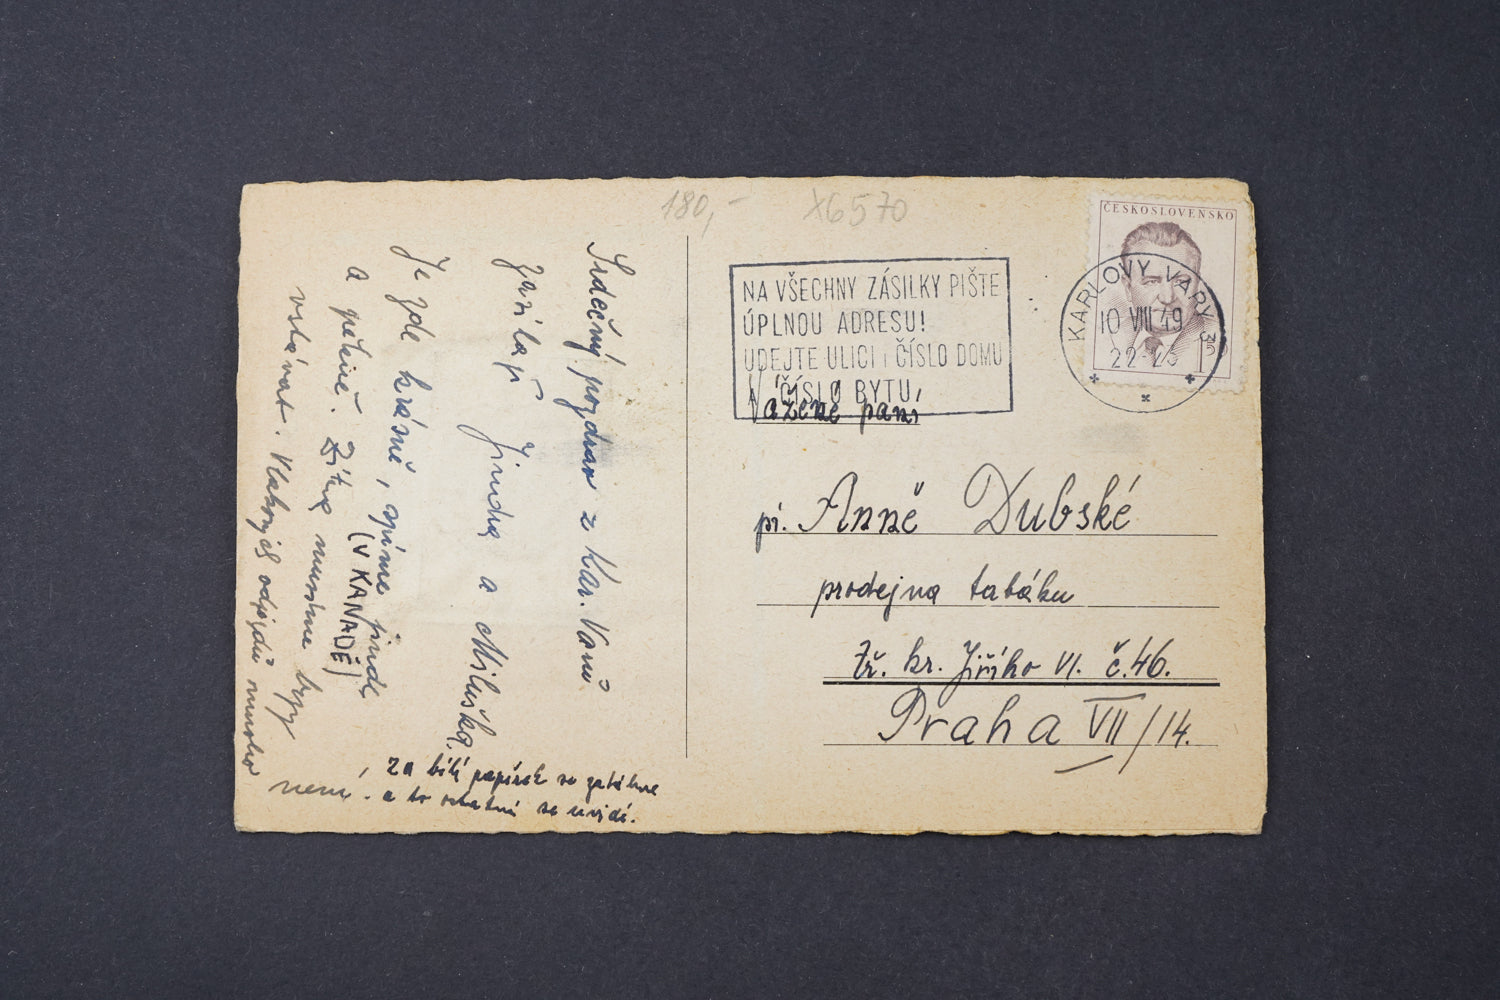 180,-
X6570
Srdečný pozdrav z Kar. Varů
zasílají
Jindra a Miluška.
Je zde krásně, spíme jinde
(V KANADĚ)
a pěkně. Zítra musíme brzy
vstávat. odjezdů mnoho
není.
Za bílý papírek se zatáhne
a to ostatní se uvidí.
NA VŠECHNY ZÁSILKY PIŠTE
ÚPLNOU ADRESU!
UDEJTE ULICI i ČÍSLO DOMU
A ČÍSLO BYTU
ČESKOSLOVENSKO
KARLOVY VARY 3
10 VIII 49
22-23
1 50
Vážené paní
pí. Anně Dubské
prodejna tabáku
Tř. kr. Jiřího VI. č.46.
Praha VII/14.